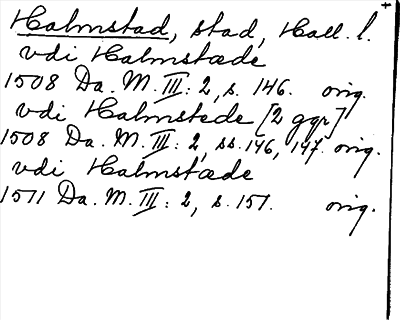 Halmstad, stad, Hall. l.
vdi Halmstæde
1508 Da. M. III: 2, s. 146. orig.
vdi Halmstede [2 ggr]
1508 Da. M. III: 2, ss. 146, 147. orig.
vdi Halmstæde
1511 Da. M. III: 2, s. 151. orig.